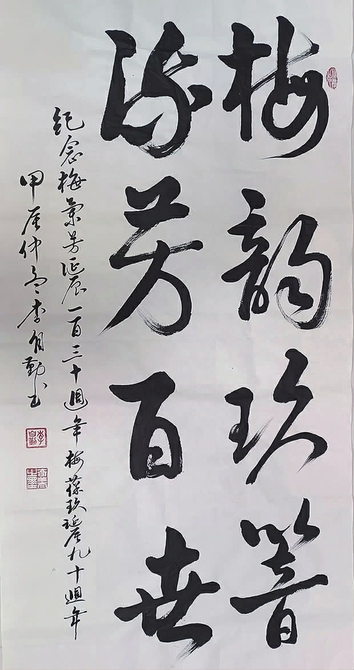 梅韵玖馨
流芳百世
纪念梅蘭芳诞辰一百三十週年梅葆玖诞辰九十週年
甲辰仲李自勤书